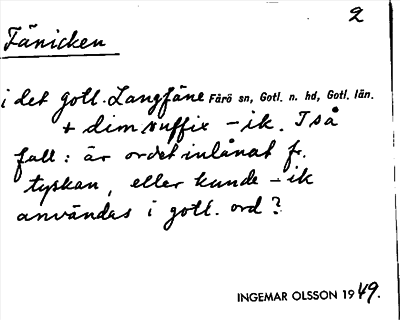 2
Fänicken
i det gotl. Langfäne Fårö sn, Gotl. n. hd, Gotl. län.
+ dim suffix -ik. I så
fall: är ordet inlånat fr.
tyskan, eller kunde -ik
användas i gotl. ord?
INGEMAR OLSSON 1949.